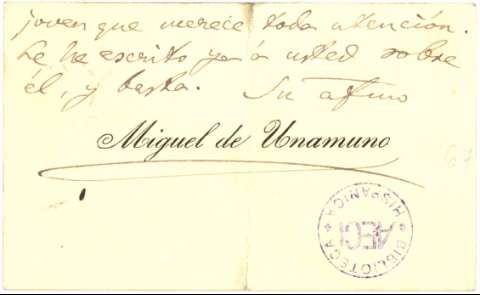 joven que merece toda atención.
Le he escrito ya á usted sobre
él, y basta. Su afmo
Miguel de Unamuno
67
BIBLIOTECA HISPANICA
AECI